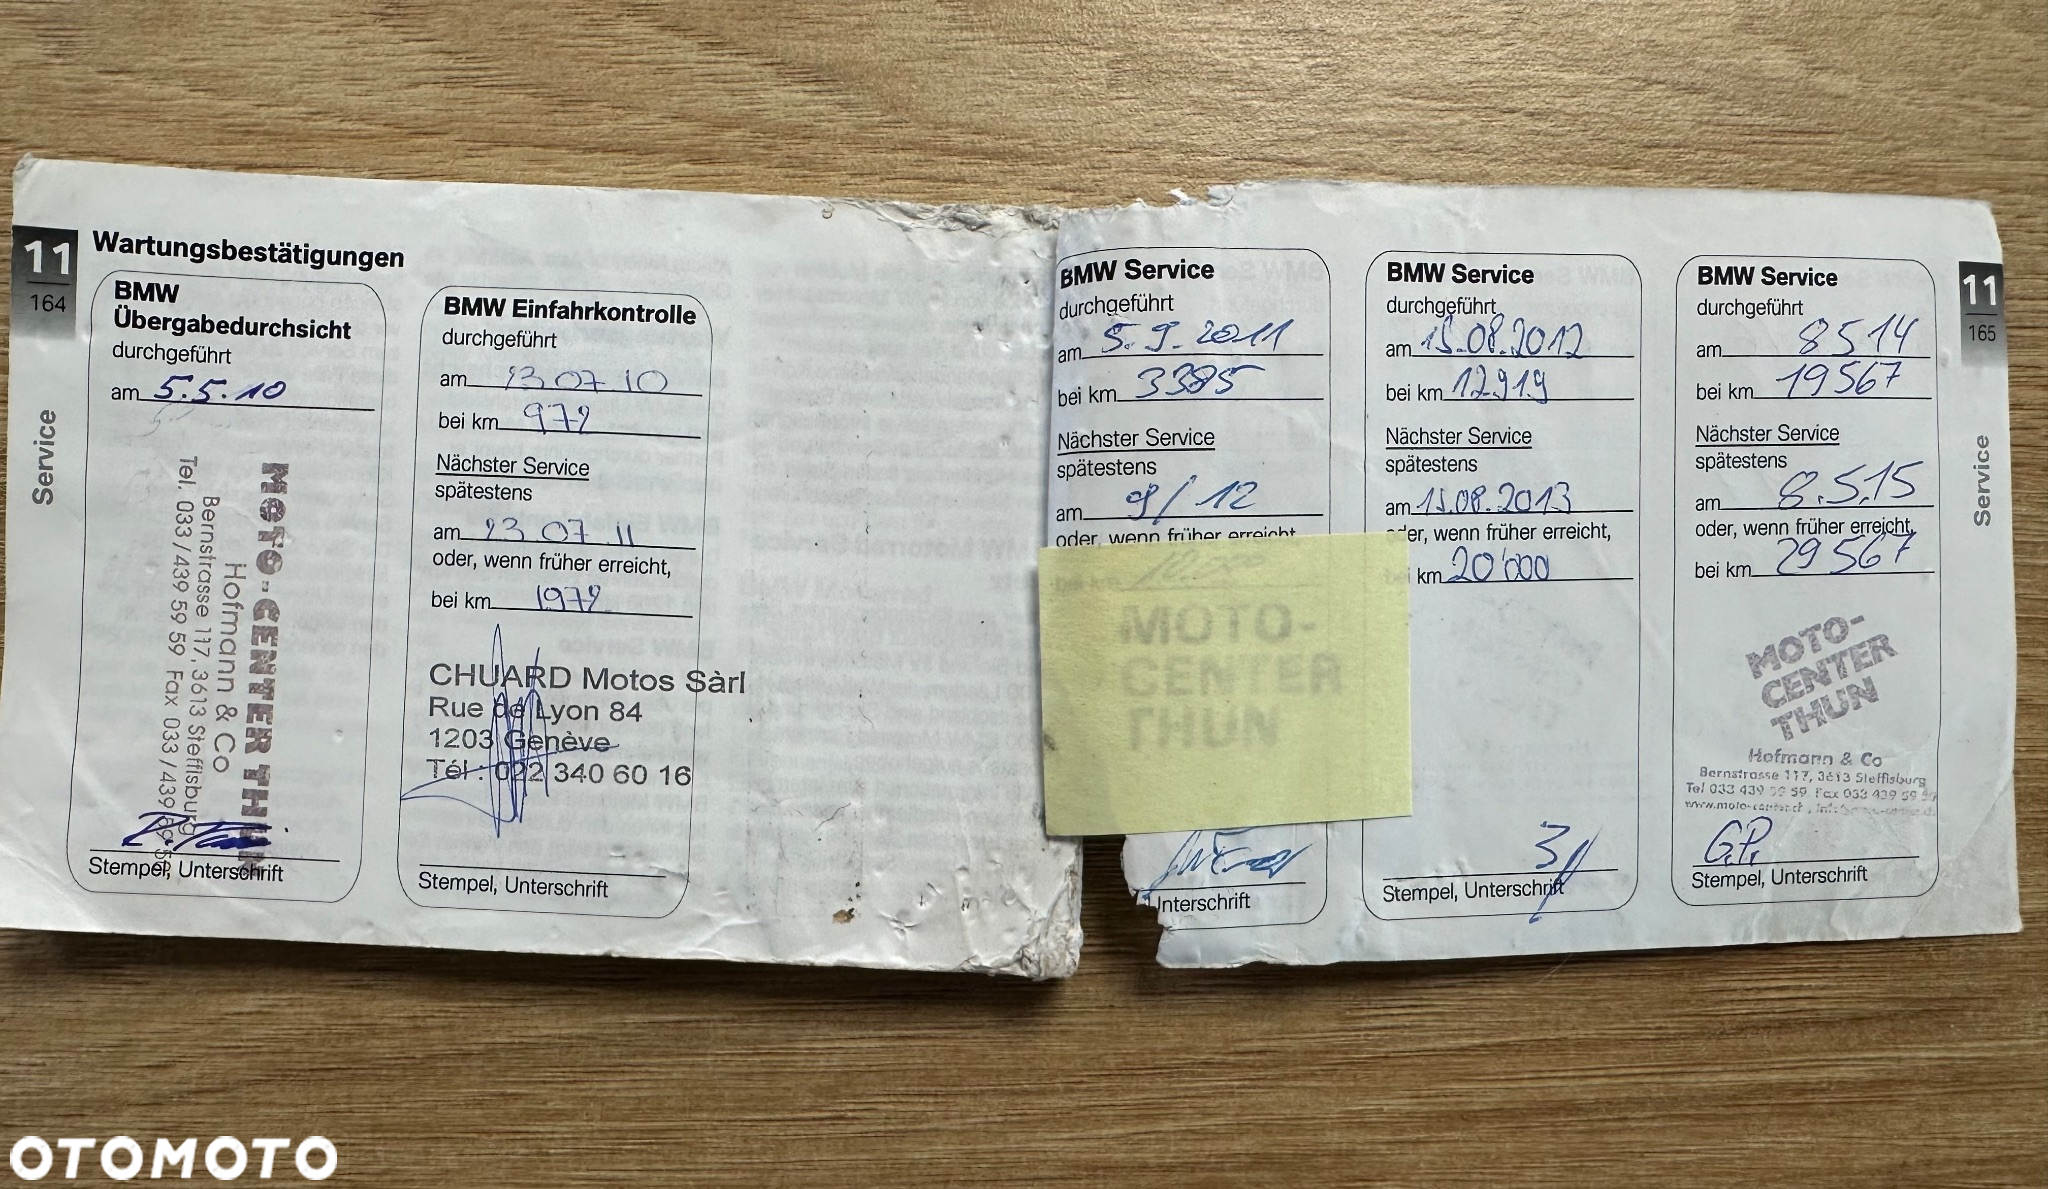 11
164
Service
Wartungsbestätigungen
BMW
Übergabedurchsicht
durchgeführt
am 5.5.10
MOTO-CENTER THUN
Hofmann & Co
Bernstrasse 117, 3613 Steffisburg
Tel. 033 / 439 59 59 Fax 033 / 439 59 5
Stempel, Unterschrift
BMW Einfahrkontrolle
durchgeführt
am 23 07 10
bei km 972
Nächster Service
spätestens
am 23 07 11
oder, wenn früher erreicht,
bei km 1972
CHUARD Motos Sàrl
Rue de Lyon 84
1203 Genève
Tél : 022 340 60 16
Stempel, Unterschrift
BMW Service
durchgeführt
am 5.9.2011
bei km 3385
Nächster Service
spätestens
am 9/12
oder, wenn früher erreicht
MOTO-
CENTER
THUN
Unterschrift
BMW Service
durchgeführt
am 15.08.2012
bei km 12919
Nächster Service
spätestens
am 15.08.2013
der, wenn früher erreicht,
km 20'000
Stempel, Unterschrift
BMW Service
durchgeführt
am 8514
bei km 19567
Nächster Service
spätestens
am 8.5.15
oder, wenn früher erreicht,
bei km 29567
MOTO-
CENTER
THUN
Hofmann & Co
Bernstrasse 117, 3613 Steffisburg
Tel 033 439 59 59 Fax 033 439 59 50
G.P.
Stempel, Unterschrift
11
165
Service
OTOMOTO